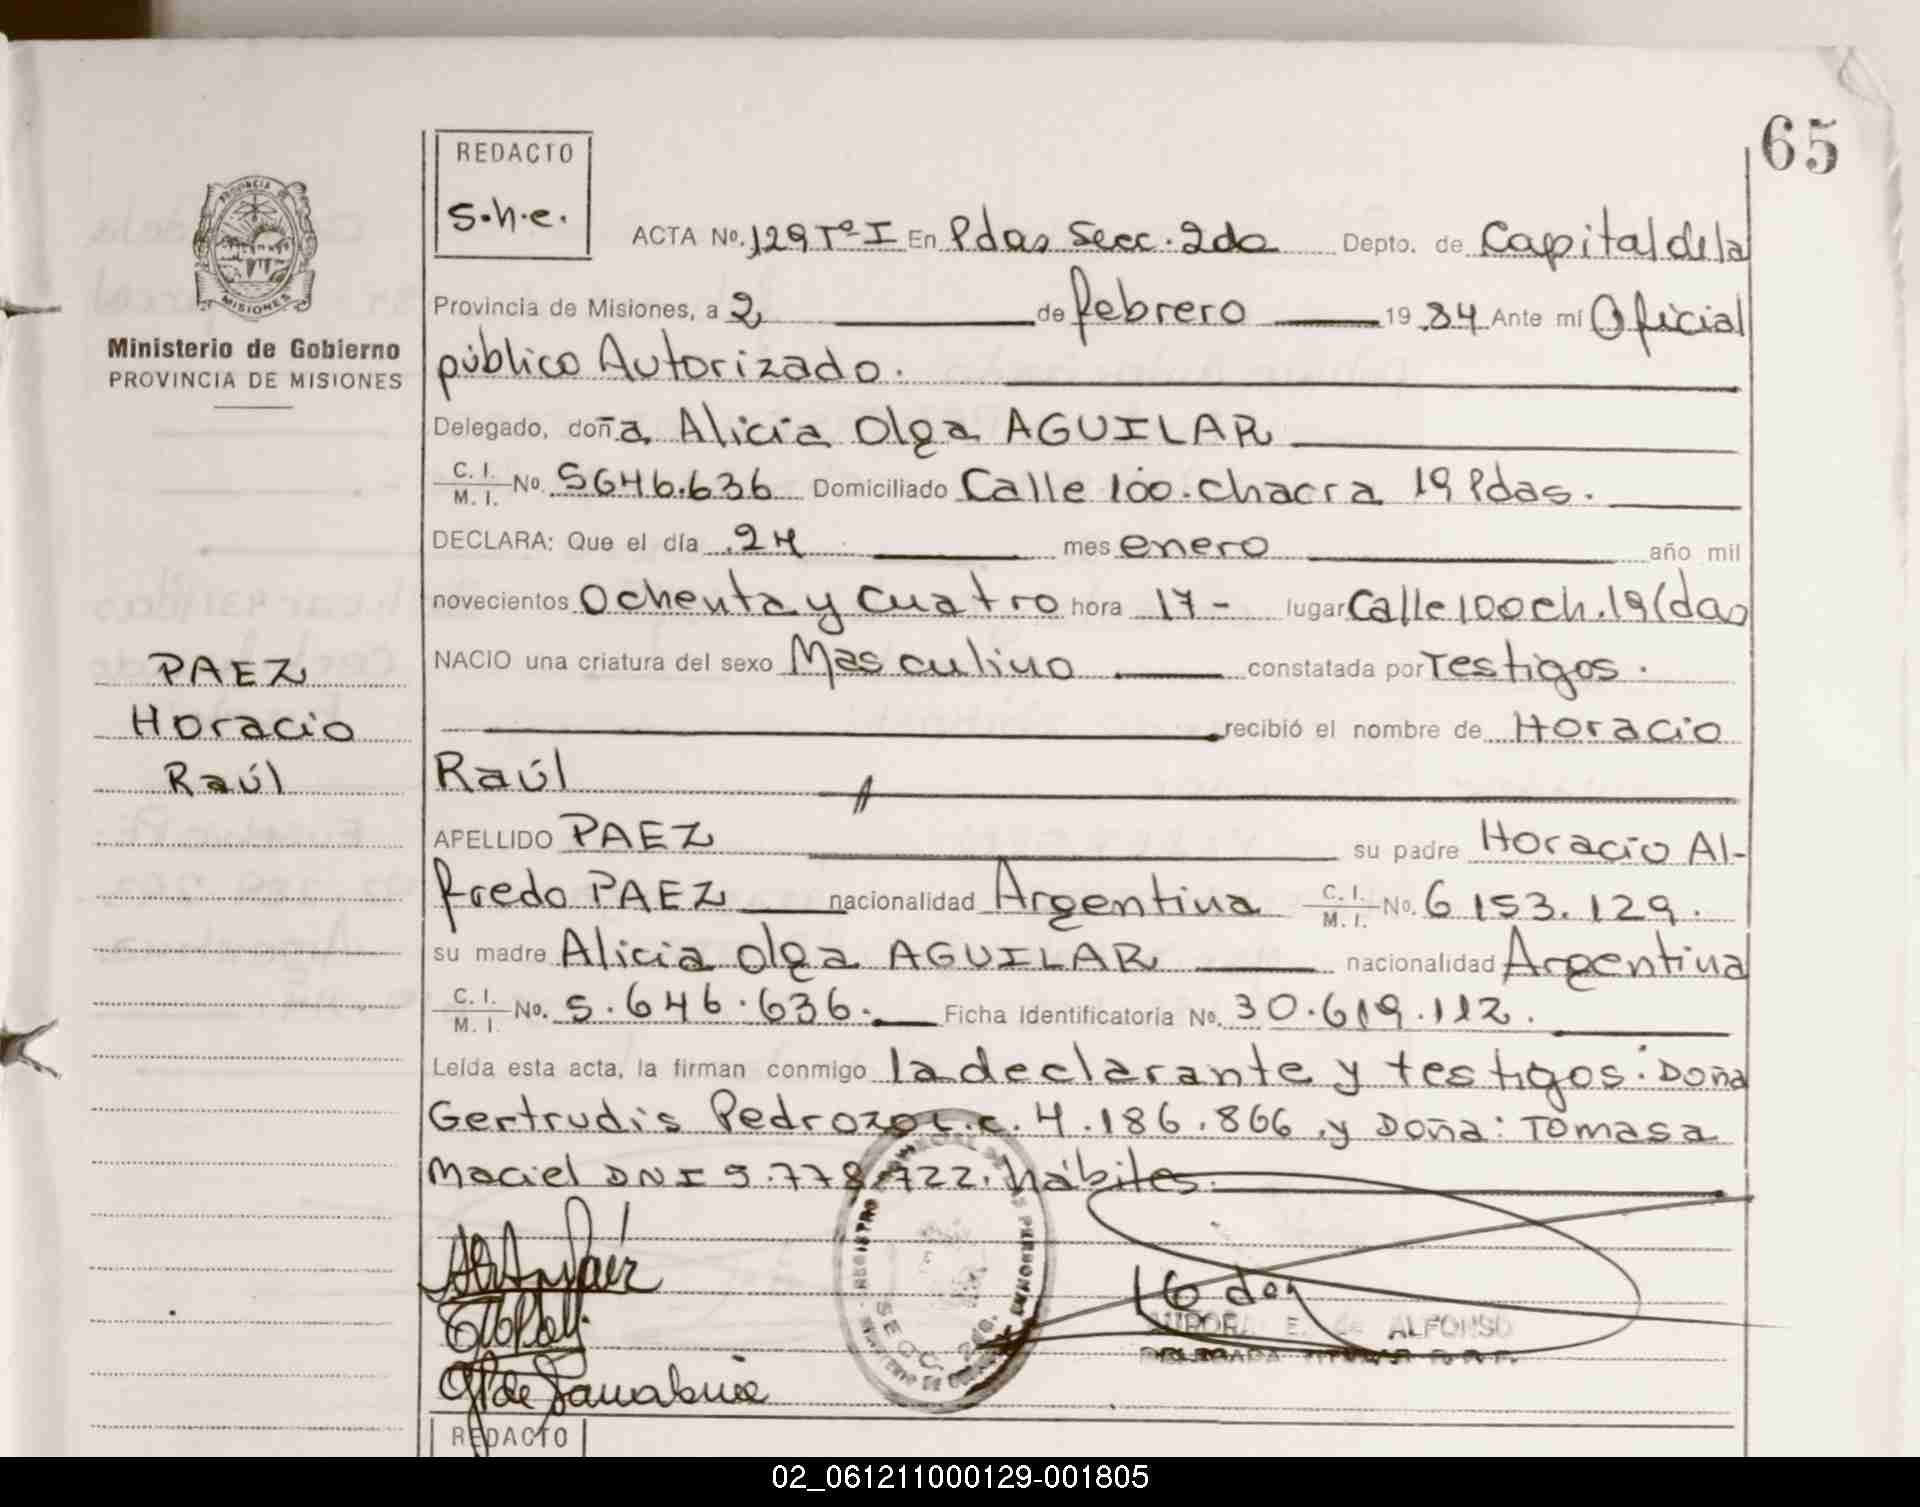 65
REDACTO
S.h.e.
PROVINCIA DE
MISIONES
Ministerio de Gobierno
PROVINCIA DE MISIONES
ACTA No. 129 Tº I En Pdas Secc. 2da Depto. de Capital de la
Provincia de Misiones, a 2 de febrero 19 84 Ante mí Oficial
público Autorizado.
Delegado, doña Alicia Olga AGUILAR
C. I. M. I. No. 5646.636 Domiciliado Calle 100. chacra 19 Pdas.
DECLARA: Que el día 24 mes enero año mil
novecientos Ochenta y cuatro hora 17 - lugar Calle 100 ch. 19 Pdas
NACIO una criatura del sexo Masculino constatada por Testigos.
recibió el nombre de Horacio
Raúl
PAEZ
Horacio
Raúl
APELLIDO PAEZ su padre Horacio Al-
fredo PAEZ nacionalidad Argentina C. I. M. I. No. 6 153.129.
su madre Alicia Olga AGUILAR nacionalidad Argentina
C. I. M. I. No. 5.646.636. Ficha Identificatoria No. 30.619.112.
Leída esta acta, la firman conmigo la declarante y testigos: Doña
Gertrudis Pedrozo L.c. 4.186.866 y Doña: Tomasa
Maciel DNI 5.778.722. hábiles.
SECC. 2da.
AURORA E. de ALFONSO
DELEGADA TITULAR
REDACTO
02_061211000129-001805